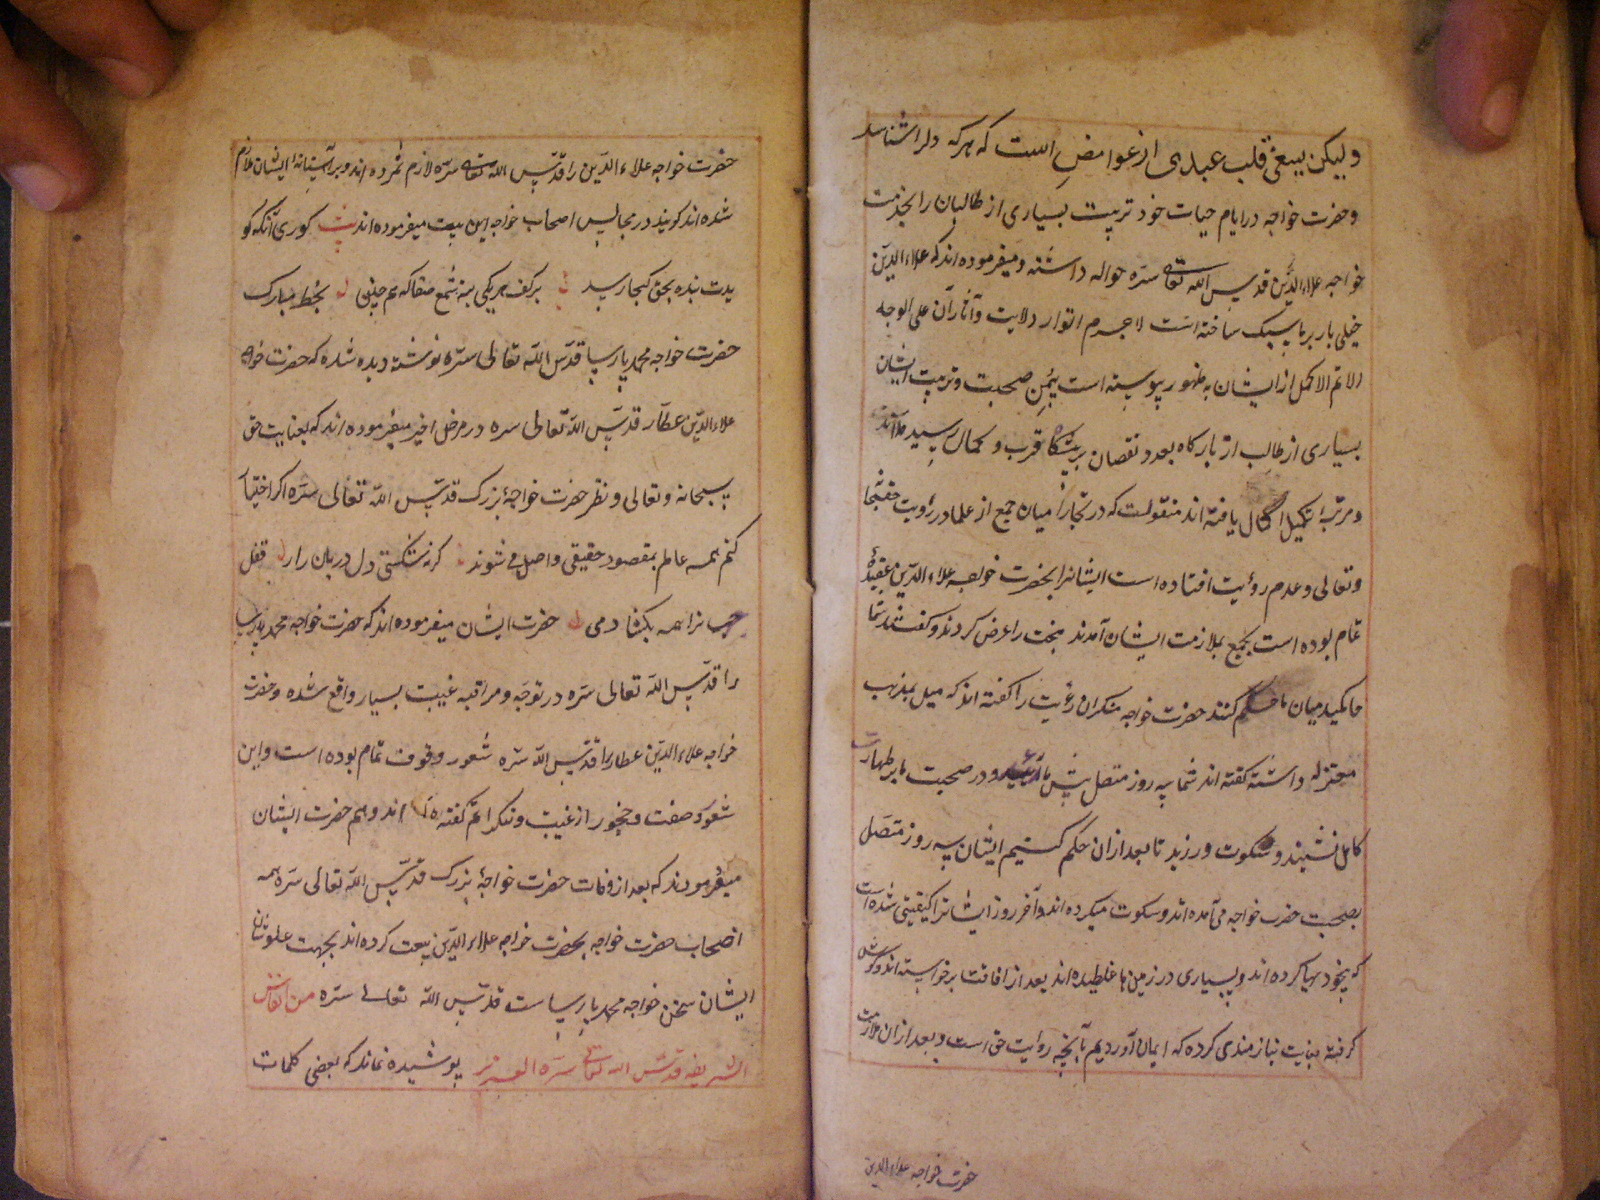 ولیکن یسعنی قلب عبدی از غوامض است که هر که دل را شناسد
و حضرت خواجه در ایام حیات خود تربیت بسیاری از طالبان را بخدمت
خواجه علاءالدین قدس الله تعالی سره حواله داشته و میفرموده اند که علاءالدین
خیلی بار بر ما سبک ساخته است لاجرم انوار ولایت و آثار آن علی الوجه
الاتم الاکمل از ایشان به ظهور پیوسته است بیمن صحبت و تربیت ایشان
بسیاری از طالب از بارگاه بعد و نقصان بر پیشگاه قرب و کمال رسیده اند
و مرتبه تکمیل اکمال یافته اند منقولست که در بخارا میان جمع از علما در رویت حق
و تعالی و عدم رؤیت افتاده است ایشانرا بحضرت خواجه علاءالدین عقیدهٔ
تمام بوده است بجمع بملازمت ایشان آمدند بحث را عرض کردند و گفتند شما
حاکمید میان ما حکم کنند حضرت خواجه منکران رؤیت را گفته اند که میل بمذهب
معتزله داشته گفته اند شما سه روز متصل پیش ما آیید و در صحبت ما بر طهارت
کامل نشیند و سکوت ورزید تا بعد ازان حکم کنیم ایشان سه روز متصل
بصحبت حضرت خواجه می آمده اند و سکوت میکرده اند و آخر روز ایشانرا کیفیتی شده است
که بیخودیها کرده اند و بسیاری در زمین ها غلطیده اند بعد از افاقت برخواسته اند و گوش
گرفته بغایت نیازمندی کرده که ایمان آوردیم بآنچه روایت حق است و بعد ازان ملازمت
حضرت خواجه علاءالدین
حضرت خواجه علاءالدین را قدس الله تعالی سره لازم شمرده اند و بر آستانه ایشان ملازم
شده اند گویند در مجالس اصحاب خواجه این بیت میفرموده اند بیت کوری آنکه گو
یدت بنده بحق کجا رسد بر کف هر یکی بنه شمع صفا که همچنین بخط مبارک
حضرت خواجه محمد پارسا قدس الله تعالی سره نوشته دیده شده که حضرت خواجه
علاءالدین عطار قدس الله تعالی سره در مرض اخیر میفرموده اند که بعنایت حق
سبحانه و تعالی و نظر حضرت خواجهٔ بزرک قدس الله تعالی سره اگر اختیار
کنم همه عالم بمقصود حقیقی واصل می شوند گر نشکستی دل دربان راز قفل
جهانرا همه بکشادمی حضرت ایشان میفرموده اند که حضرت خواجه محمد پارسا
را قدس الله تعالی سره در توجه و مراقبه غیبت بسیار واقع شده و حضرت
خواجه علاءالدین عطار را قدس الله سره شعور و وقوف تمام بوده است و این
شعور صفت و حضور از غیبت و سکر اتم گفته اند و هم حضرت ایشان
میفرمودند که بعد از وفات حضرت خواجهٔ بزرک قدس الله تعالی سره همه
اصحاب حضرت خواجه بحضرت خواجه علاءالدین بیعت کرده اند بجهت علو شان
ایشان سخن خواجه محمد پارسا ست قدس الله تعالی سره من انفاس
الشریفه قدس الله تعالی سره العزیز پوشیده نماند که بعضی کلمات